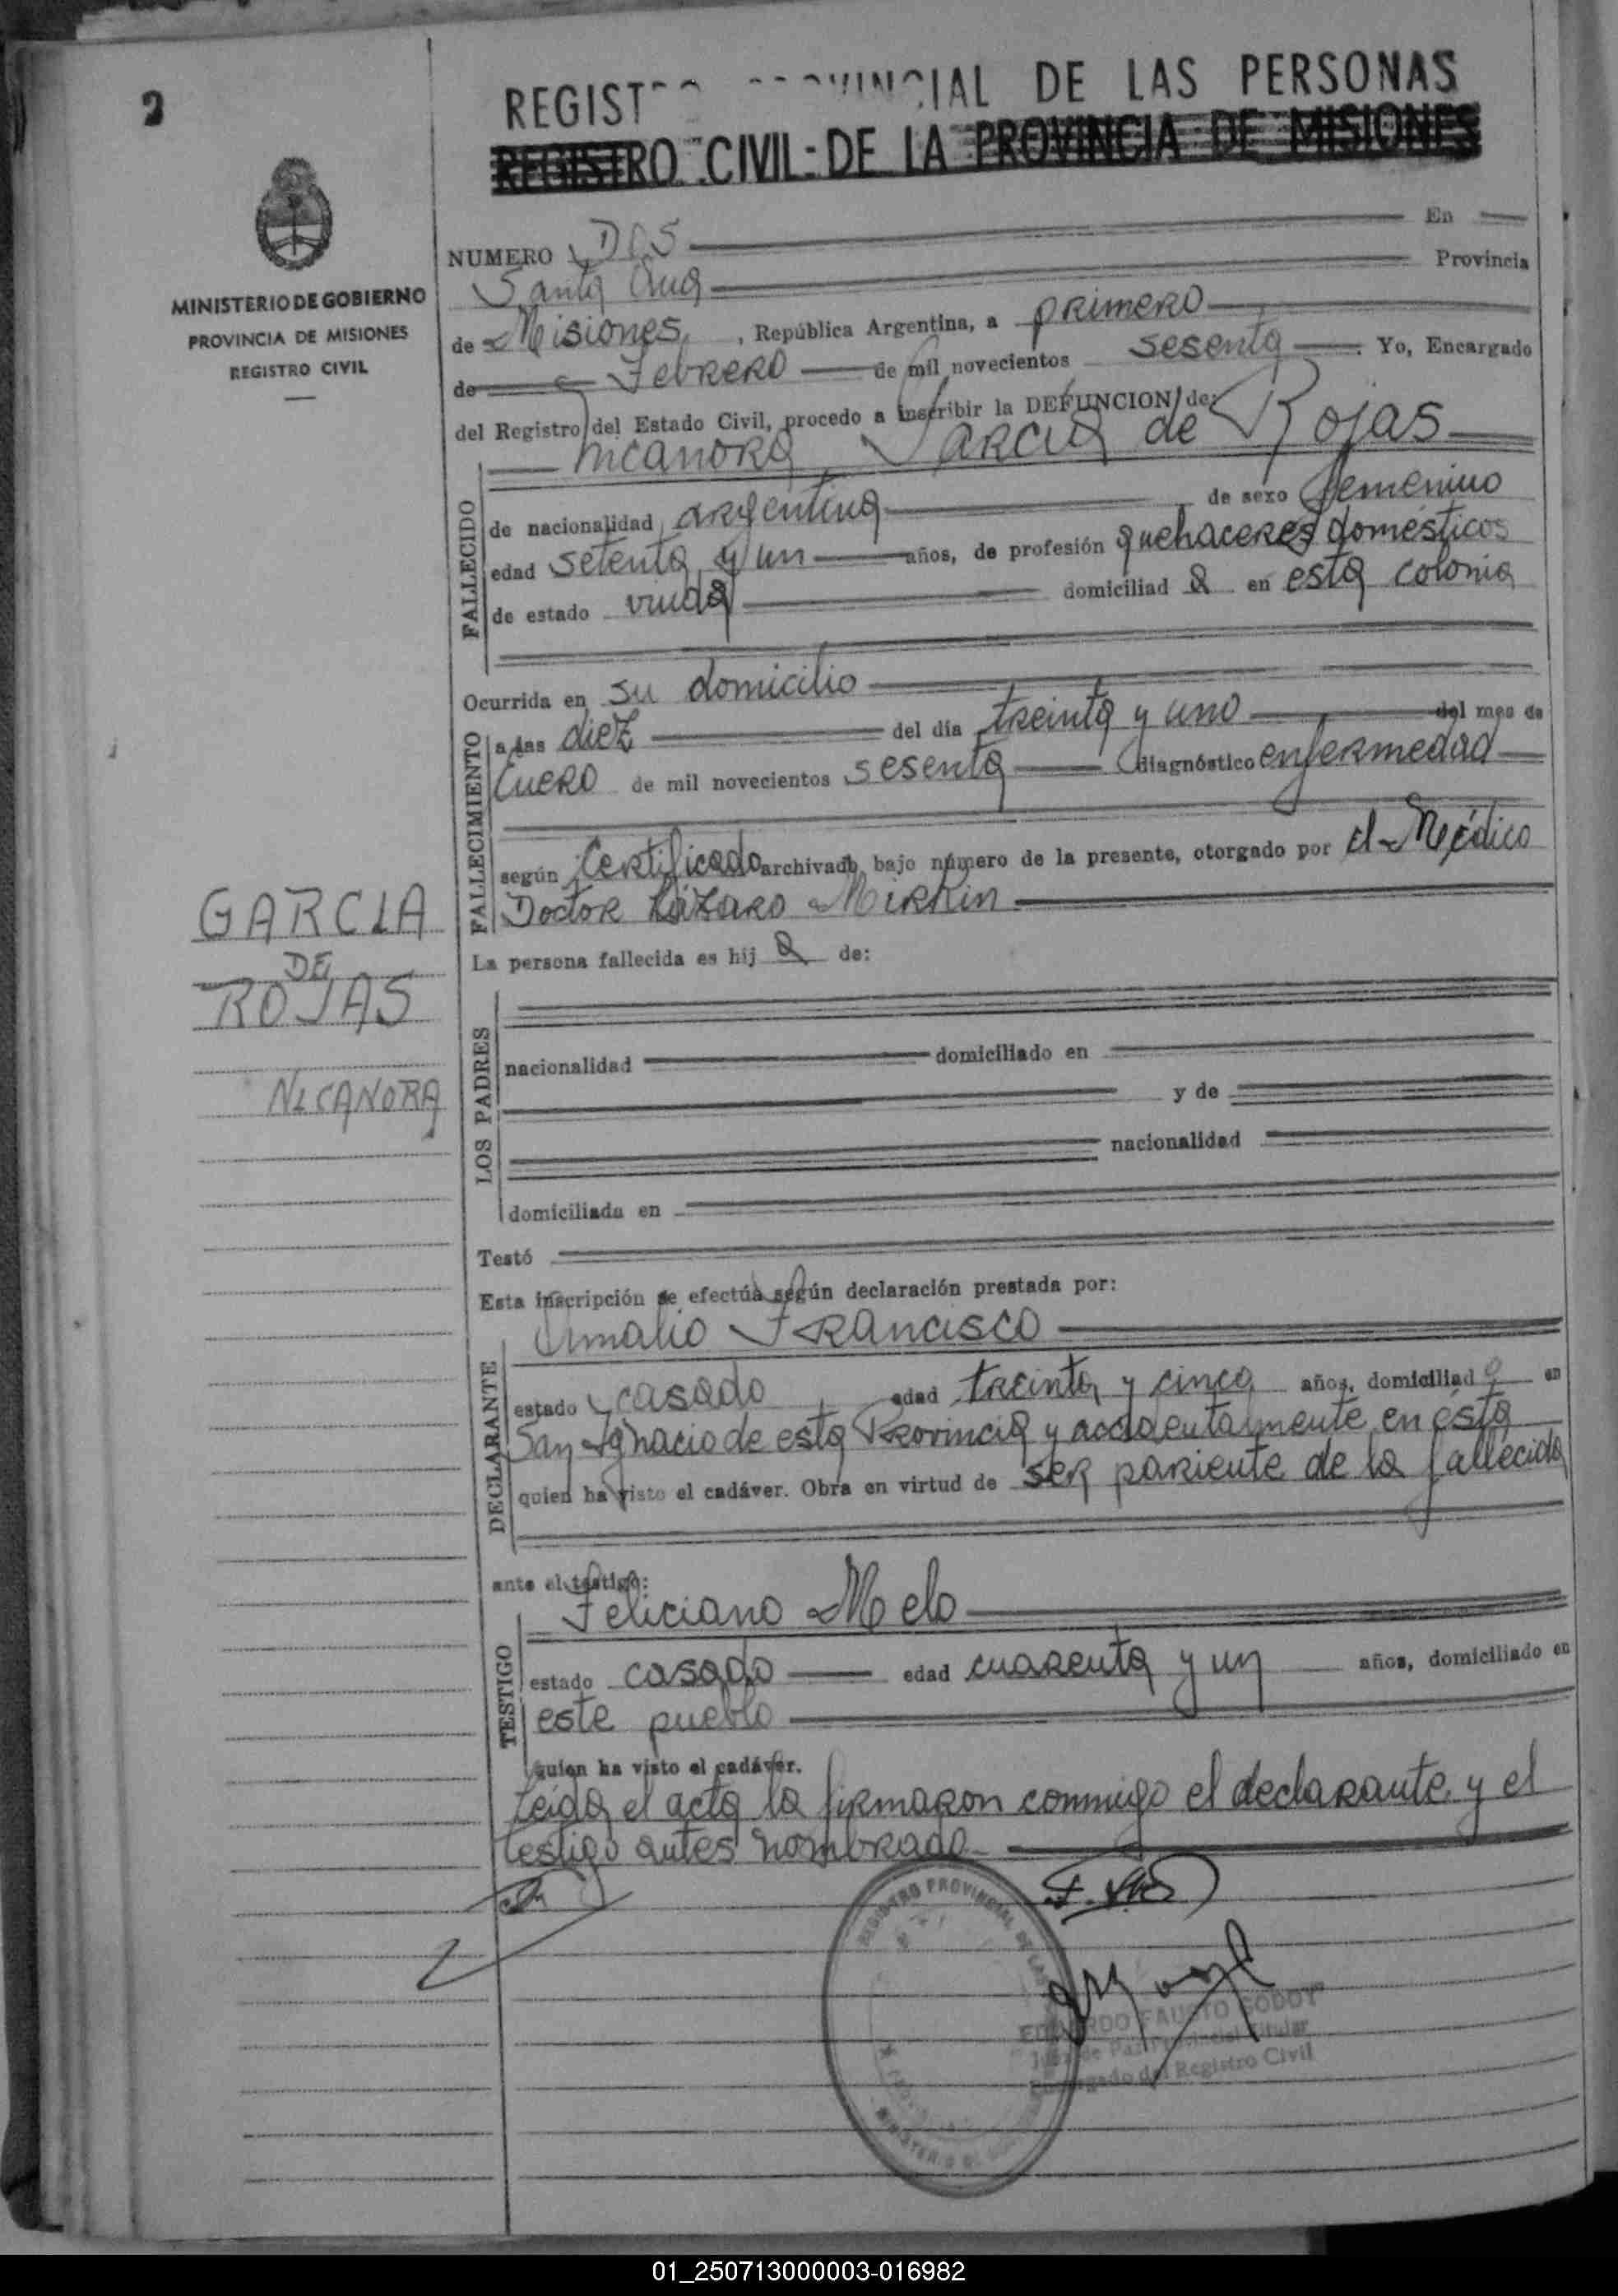 2
REGISTRO PROVINCIAL DE LAS PERSONAS
REGISTRO CIVIL DE LA PROVINCIA DE MISIONES
MINISTERIO DE GOBIERNO
PROVINCIA DE MISIONES
REGISTRO CIVIL
NUMERO DOS En
Santa Ana Provincia
de Misiones, República Argentina, a primero
de Febrero de mil novecientos sesenta. Yo, Encargado
del Registro del Estado Civil, procedo a inscribir la DEFUNCION de:
Nicanora Garcia de Rojas
FALLECIDO
de nacionalidad argentina de sexo femenino
edad setenta y un años, de profesión quehaceres domésticos
de estado viuda domiciliad a en esta colonia
Ocurrida en su domicilio
FALLECIMIENTO
a las diez del día treinta y uno del mes de
Enero de mil novecientos sesenta diagnóstico enfermedad
según Certificado archivado bajo número de la presente, otorgado por el Médico
Doctor Lázaro Mirkin
GARCIA
DE
ROJAS
NICANORA
La persona fallecida es hij a de:
LOS PADRES
nacionalidad domiciliado en
y de
nacionalidad
domiciliada en
Testó
Esta inscripción se efectúa según declaración prestada por:
Amalio Francisco
DECLARANTE
estado casado edad treinta y cinco años, domiciliad o en
San Ignacio de esta Provincia y accidentalmente en ésta
quien ha visto el cadáver. Obra en virtud de ser pariente de la fallecida
ante el testigo:
Feliciano Melo
TESTIGO
estado casado edad cuarenta y un años, domiciliado en
este pueblo
quien ha visto el cadáver.
Leída el acta la firmaron conmigo el declarante y el
testigo antes nombrado
REGISTRO PROVINCIAL DE LAS
MINISTERIO DE
EDUARDO FAUSTO GODOY
Juez de Paz Provincial Titular
Encargado del Registro Civil
01_250713000003-016982